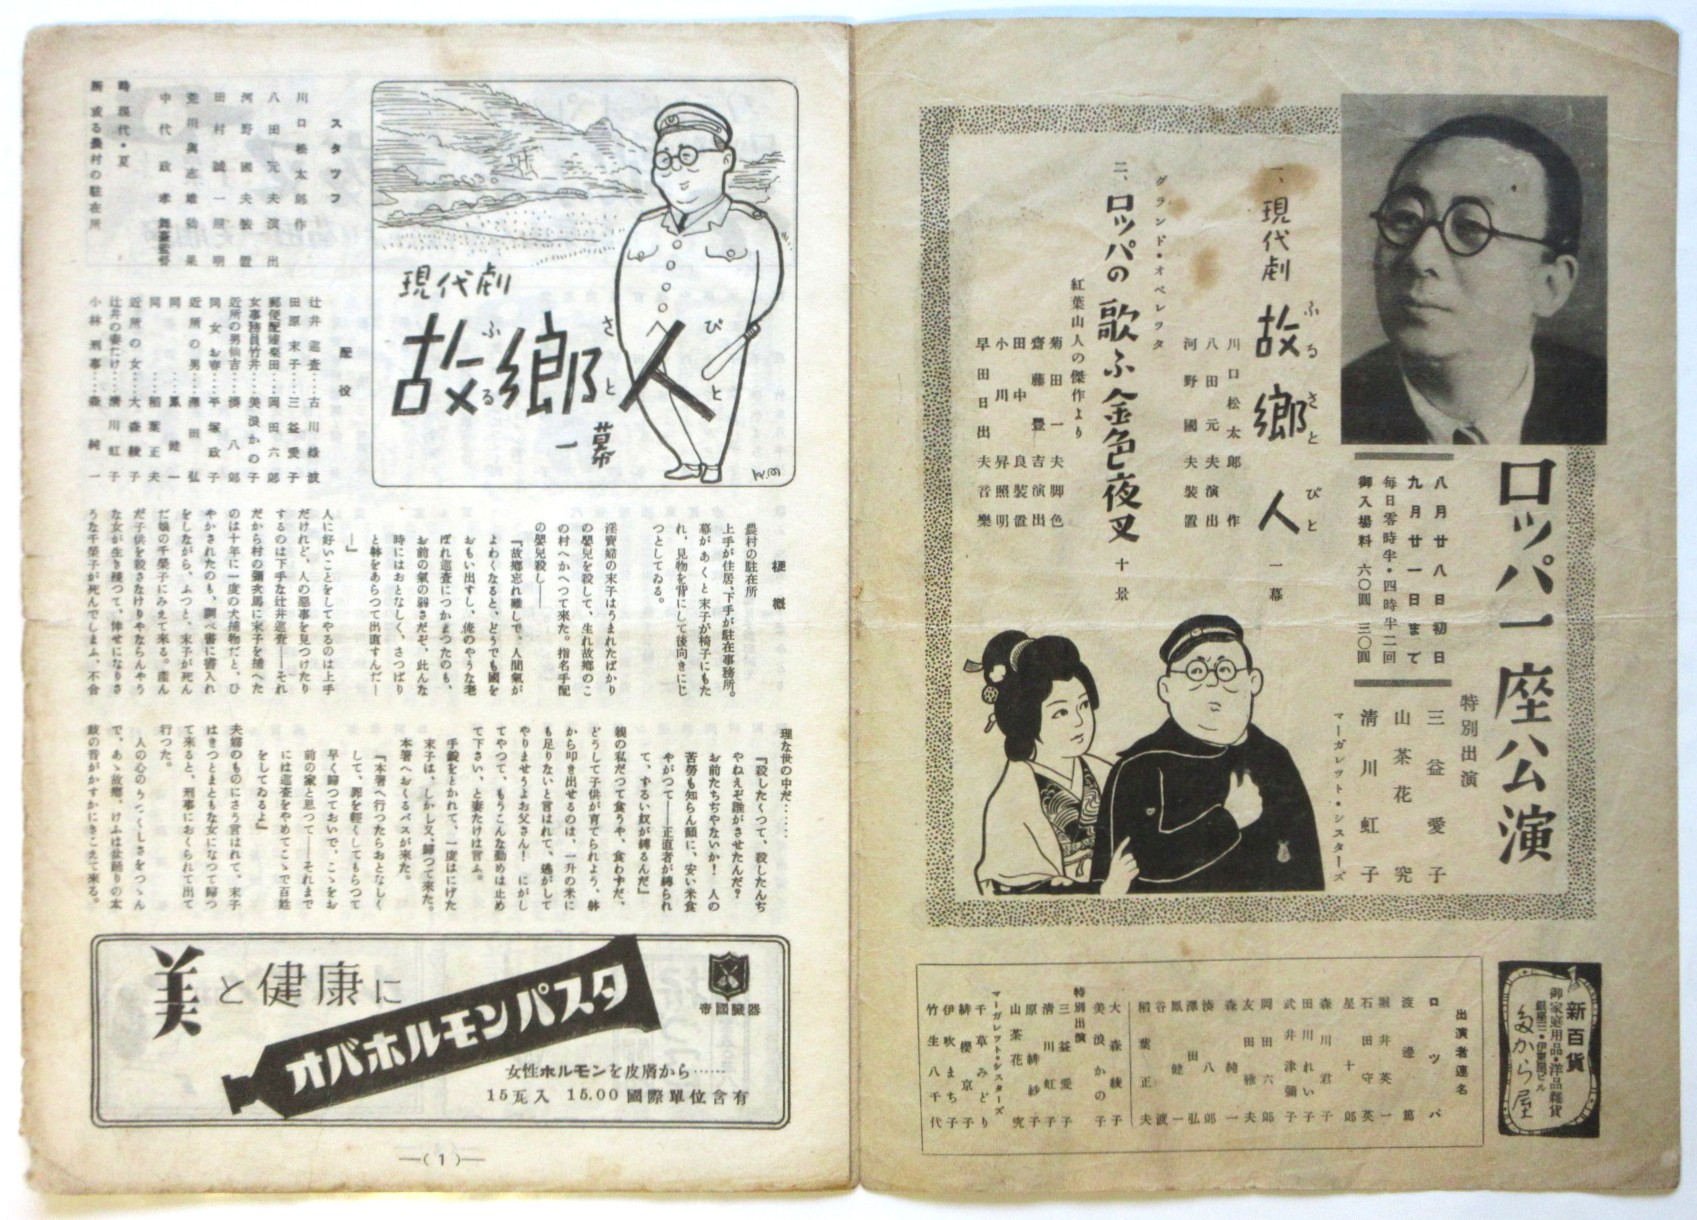 ロッパ一座公演
八月廿八日初日
九月廿一日まで
毎日零時半・四時半二回
御入場料 六〇圓 三〇圓
特別出演
三益愛子
山茶花究
清川虹子
マーガレット・シスターズ
一、現代劇 故鄕人 一幕
ふるさとびと
川口松太郎作
八田元夫演出
河野國夫裝置
グランド・オペレッタ
二、ロッパの歌ふ金色夜叉 十景
紅葉山人の傑作より
菊田一夫脚色
齋藤豊吉演出
田中良裝置
小川昇照明
早田日出夫音樂
新百貨
御家庭用品・洋品雜貨
たから屋
出演者連名
ロッパ
渡邊篤
堀井英一
石田守英
星十郎
森川君子
田川れい子
武井津彌子
岡田六郎
友田雅夫
森純一
湊八郎
澤田弘
鳳健一
谷渡
稲葉正夫
大森綾子
美浪かの子
特別出演
三益愛子
清川虹子
原緋紗子
山茶花究
マーガレット・シスターズ
千草みどり
緋櫻京子
伊吹まち子
竹生八千代
現代劇
故鄕人
ふるさとびと
一幕
スタッフ
川口松太郎作
八田元夫演出
河野國夫裝置
田村誠一照明
荒川與志雄効果
中代政孝舞臺監督
時 現代・夏
所 或る農村の駐在所
配役
辻井巡査……古川綠波
田原末子……三益愛子
郵便配達柴田……岡田六郎
女事務員竹井……美浪かの子
近所の男仙吉……湊八郎
同 女お春……平塚政子
近所の男……澤田弘
同……鳳健一
同……稲葉正夫
近所の女……大森綾子
辻井の妻たけ……清川虹子
小林刑事……森純一
梗概
農村の駐在所
上手が住居、下手が駐在事務所。
幕があくと末子が椅子にもた
れ、見物を背にして後向きにじ
つとしてゐる。
淫賣婦の末子はうまれたばかり
の嬰兒を殺して、生れ故鄕のこ
の村へかへつて來た。指名手配
の嬰兒殺し――
『故鄕忘れ難しで、人間氣が
よわくなると、どうでも國を
おもい出すし、俺のやうな老
ぼれ巡査につかまつたのも、
お前の氣の弱さだぞ、此んな
時にはおとなしく、さつぱり
と躰をあらつて出直すんだ―
―』
人に好いことをしてやるのは上手
だけれど、人の惡事を見つけたり
するのは下手な辻井巡査――それ
だから村の彌次馬に末子を捕へた
のは十年に一度の大捕物だと、ひ
やかされたのも、調べ書に書入れ
をしながら、ふつと、末子が死ん
だ娘の千榮子にみえて來る。産ん
だ子供を殺さなけりやならんやう
な女が生き殘つて、倖せになりさ
うな千榮子が死んでしまふ、不合
理な世の中だ……
『殺したくつて、殺したんぢ
やねえぞ誰がさせたんだ?
お前たちぢやないか! 人の
苦勞も知らん顏に、安い米食
やがつて――正直者が縛られ
て、ずるい奴が縛るんだ』
親の私だつて食うや、食わずだ、
どうして子供が育てられよう、躰
から叩き出せるのは、一升の米に
も足りないと言はれて、逃がして
やりませうよお父さん! にがし
てやつて、もうこんな勤めは止め
て下さい、と妻たけは言ふ。
手錠をとかれて、一度はにげた
末子は、しかし又、歸つて來た。
本署へおくるバスが來た。
『本署へ行つたらおとなしく
して、罪を輕くしてもらつて
早く歸つておいで、こゝをお
前の家と思つて――それまで
には巡査をやめてこゝで百姓
をしてゐるよ』
夫婦のものにさう言はれて、末子
はきつとまともな女になつて歸つ
て來ると、刑事におくられて出て
行つた。
人の心のうつくしさをつゝん
で、あゝ故鄕、けふは盆踊りの太
鼓の音がかすかにきこえて來る。
美と健康に
オバホルモンパスタ
帝國臓器
女性ホルモンを皮膚から……
15瓦入 15.00 國際單位含有
―( 1 )―